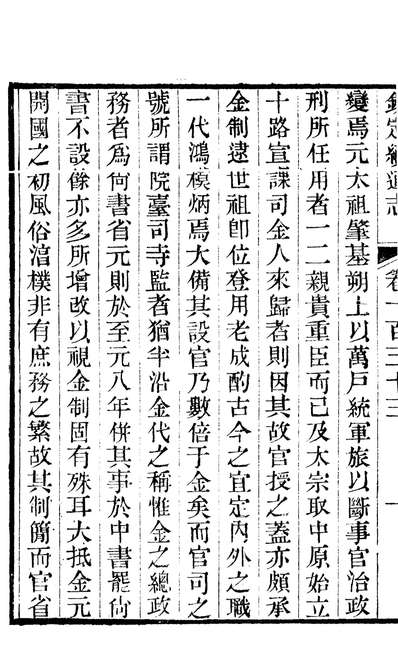 欽定續通志 卷一百三十三 一
變焉元太祖肇基朔土以萬戶統軍旅以斷事官治政
刑所任用者一二親貴重臣而已及太宗取中原始立
十路宣課司金人來歸者則因其故官授之蓋亦頗承
金制逮世祖卽位登用老成酌古今之宜定內外之職
一代鴻模炳焉大備其設官乃數倍于金矣而官司之
號所謂院臺司寺監者猶半沿金代之稱惟金之總政
務者爲尙書省元則於至元八年併其事於中書罷尙
書不設餘亦多所增改以視金制固有殊耳大抵金元
開國之初風俗湻樸非有庶務之繁故其制簡而官省